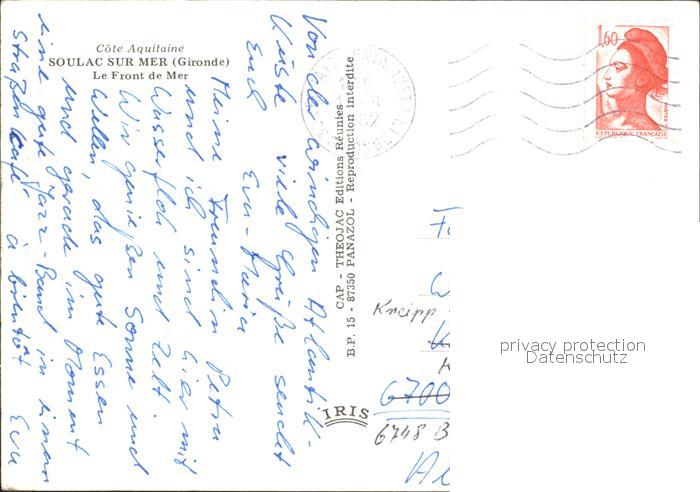 Côte Aquitaine
SOULAC SUR MER (Gironde)
Le Front de Mer
Von der windigen Atlantik-
küste viele Grüße sendet
Euch Eva-Maria
Meine Freundin Petra
und ich sind hier mit
Wasserfloh und Zelt.
Wir genießen Sonne und
Wellen, das gute Essen
und gerade im Moment
eine gute Jazz-Band in einem
Straßencafé. à bientôt Eva
CAP - THEOJAC Editions Réunies
B.P. 15 - 87350 PANAZOL - Reproduction interdite
IRIS
1,60
REPUBLIQUE FRANÇAISE
Kneipp
6700
6748 B
privacy protection
Datenschutz